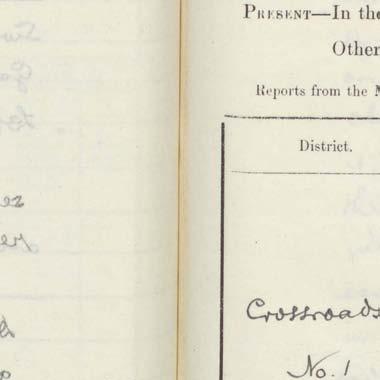 PRESENT—In the
Other
Reports from the M
District.
Crossroads
No. 1